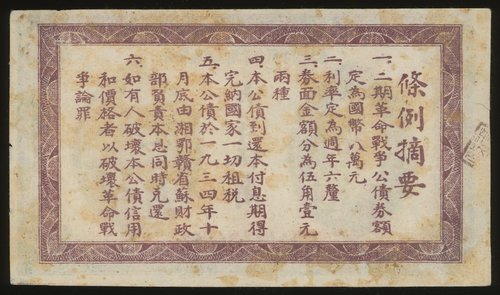 條例摘要
一、二期革命戰爭公債券額
定為國幣八萬元
二、利率定為週年六釐
三、券面金額分為伍角壹元
兩種
四、本公債到還本付息期得
完納國家一切租税
五、本公債於一九三四年十
月底由湘鄂贛省蘇財政
部負責本息同時兌還
六、如有人破壞本公債信用
和價格者以破壞革命戰
爭論罪